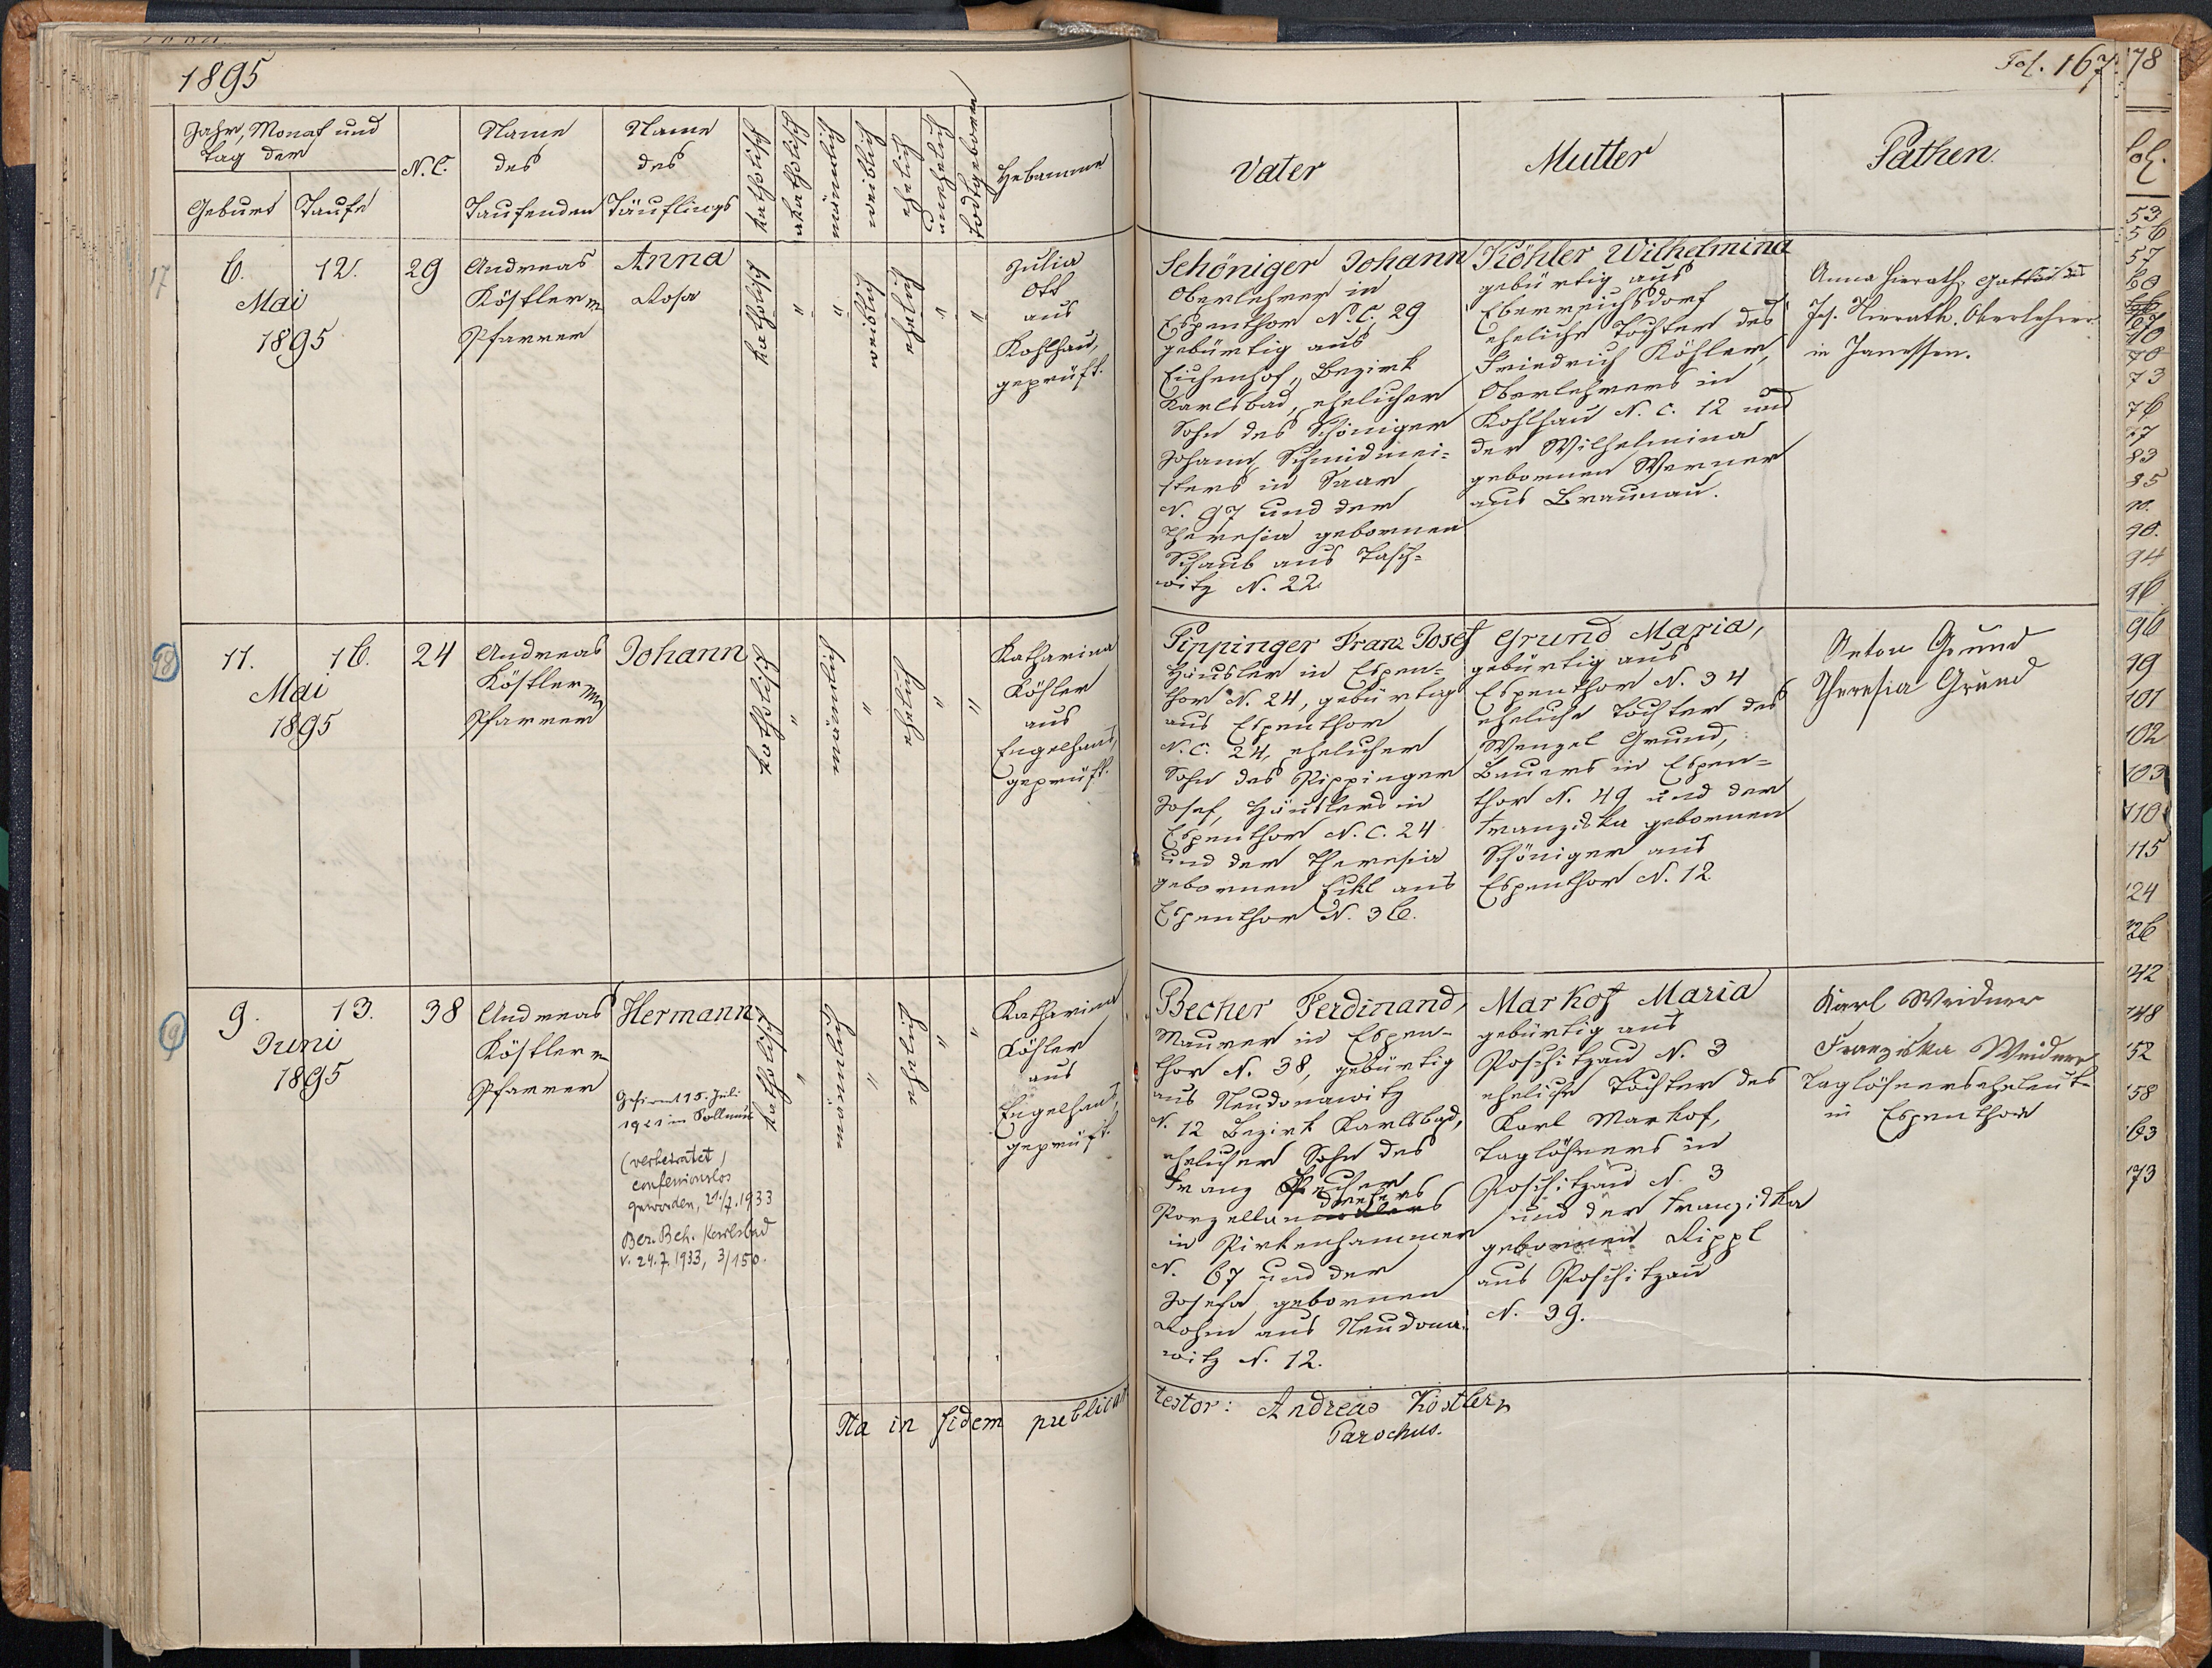 1895
Jahr, Monat und
Tag der
Geburt
Taufe
N. C.
Name
des
Taufenden
Name
des
Täuflings
katholisch
akatholisch
männlich
weiblich
ehelich
unehelich
todtgeboren
Hebamme
17
6.
12.
Mai
1895
29
Andreas
Köstler
Pfarrer
Anna
Rosa
katholisch
"
"
weiblich
ehelich
"
"
Julia
Ott
aus
Kohlhau,
geprüft.
18
11.
16.
Mai
1895
24
Andreas
Köstler
Pfarrer
Johann
katholisch
"
männlich
"
ehelich
"
"
Katharina
Köhler
aus
Engelhaus,
geprüft.
19
9.
13.
Juni
1895
38
Andreas
Köstler
Pfarrer
Hermann
Gefirmt 15. Juli
1921 in Sollmus
(verheiratet,
confessionslos
geworden, 21./7. 1933
Bez. Beh. Karlsbad
v. 24.7.1933, 3/150.
katholisch
"
männlich
"
ehelich
"
"
Katharina
Köhler
aus
Engelhaus,
geprüft.
Ita in fidem publicam
Fol. 167.
Vater
Mutter
Pathen.
Schöniger Johann
Oberlehrer in
Espenthor N. C. 29
gebürtig aus
Eichenhof, Bezirk
Karlsbad, ehelicher
Sohn des Schöniger
Johann, Schmidmei=
sters in Saar
N. 97 und der
Theresia gebornen
Schaub aus Tasch=
witz N. 22.
Köhler Wilhelmina
gebürtig aus
Eberreichsdorf
eheliche Tochter des
Friedrich Köhler,
Oberlehrers in
Kohlhau N. C. 12 und
der Wilhelmina
gebornen Werner
aus Braunau.
Anna Hierath, Gattin des
Jos. Hierath, Oberlehrer
in Janessen.
Pippinger Franz Josef
Häusler in Espen=
thor N. 24, gebürtig
aus Espenthor
N. C. 24, ehelicher
Sohn des Pippinger
Josef, Häuslers in
Espenthor N. C. 24
und der Theresia
gebornen Eckl aus
Espenthor N. 36.
Grund Maria,
gebürtig aus
Espenthor N. 34
eheliche Tochter des
Wenzel Grund,
Bauers in Espen=
thor N. 49 und der
Franziska gebornen
Schöniger aus
Espenthor N. 12
Anton Grund
Theresia Grund
Becher Ferdinand,
Maurer in Espen=
thor N. 38, gebürtig
aus Neudonawitz
N. 12 Bezirk Karlsbad,
ehelicher Sohn des
Franz Becher
drehers
Porzellan
in Pirkenhammer
N. 67 und der
Josefa gebornen
Rohm aus Neudona=
witz N. 12.
Markof Maria
gebürtig aus
Poschitzau N. 3
eheliche Tochter des
Karl Markof,
Taglöhners in
Poschitzau N. 3
und der Franziska
gebornen Rippl
aus Poschitzau
N. 39.
Karl Weidner
Franziska Weidner
Taglöhnerseheleute
in Espenthor
testor: Andreas Köstler
Parochus.
78
fol.
53
56
57
60
70
73
76
77
83
85
90.
94
96
96
99
101
102
103
110
115
124
126
142
148
152
158
163
173